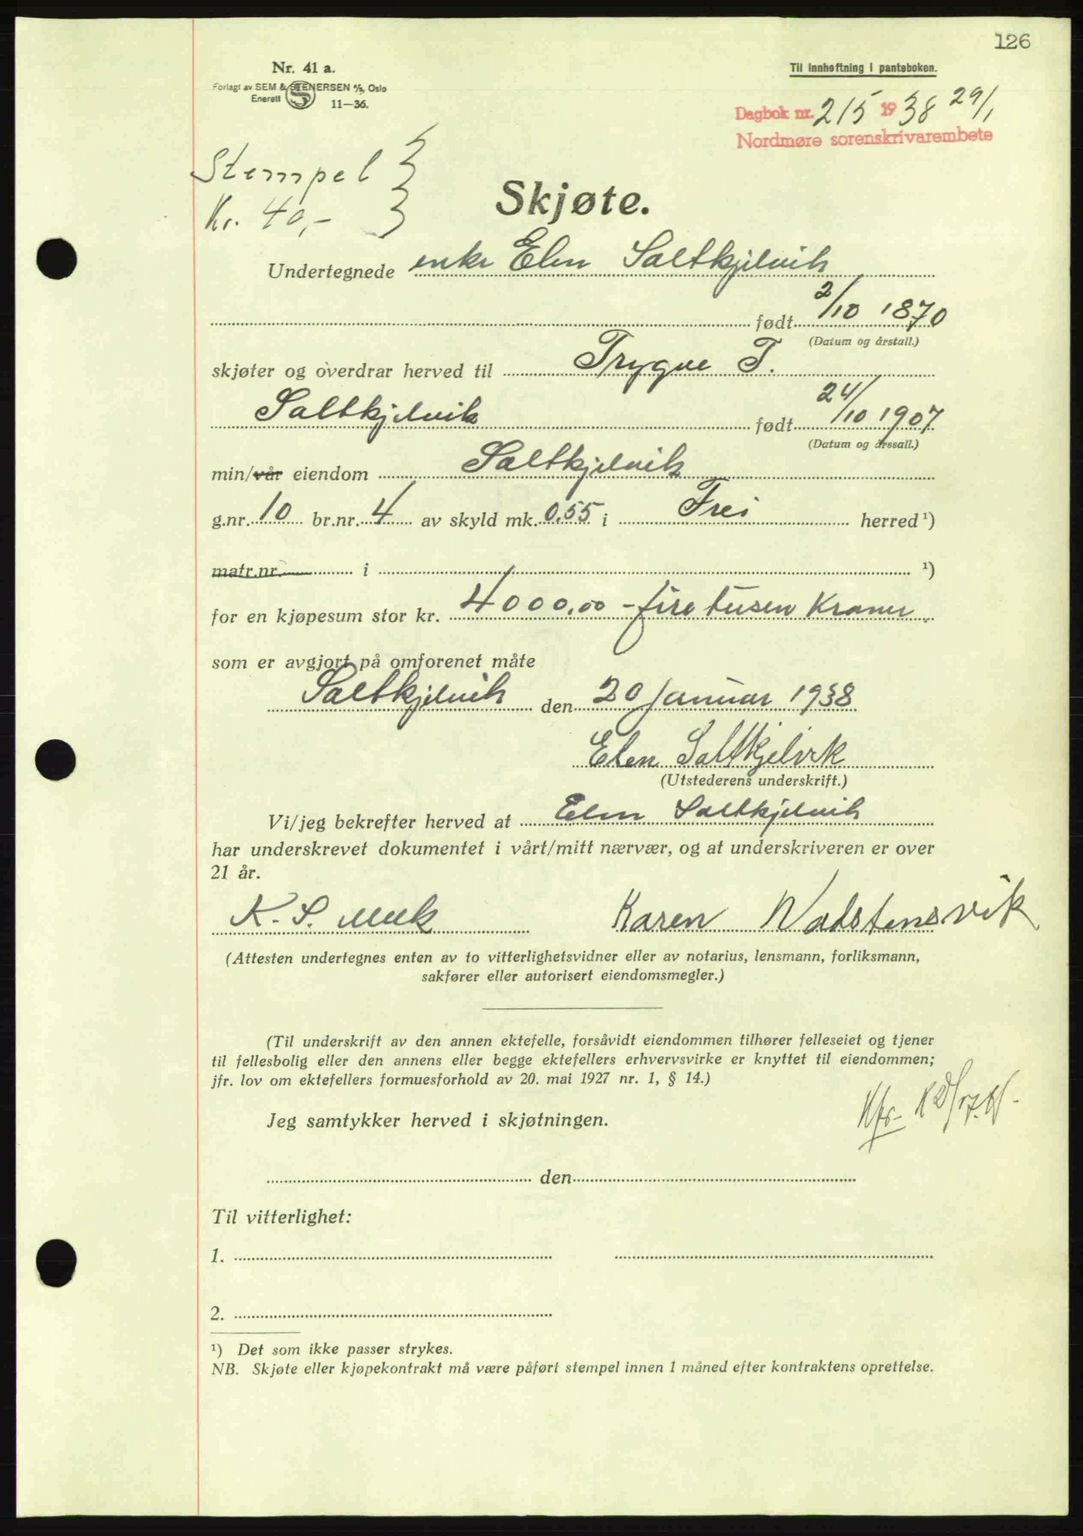 126
Nr. 41 a.
Til innheftning i panteboken.
Forlagt av SEM & STENERSEN A/S, Oslo
Enerett S 11—36.
Dagbok nr. 215 1938 29/1
Nordmøre sorenskrivarembete
Stempel }
Kr. 40,- }
Skjøte.
Undertegnede enke Elen Saltkjelvik
født 2/10 1870
(Datum og årstall.)
skjøter og overdrar herved til Trygve T.
Saltkjelvik født 24/10 1907
(Datum og årstall.)
min/vår eiendom Saltkjelvik
g.nr. 10 br.nr. 4 av skyld mk. 0,55 i Frei herred ¹)
matr.nr. i ¹)
for en kjøpesum stor kr. 4000,00 - fire tusen Kroner.
som er avgjort på omforenet måte
Saltkjelvik den 20 januar 1938
Elen Saltkjelvik
(Utstederens underskrift.)
Vi/jeg bekrefter herved at Elen Saltkjelvik
har underskrevet dokumentet i vårt/mitt nærvær, og at underskriveren er over
21 år.
K. S. Karen Wadstensvik
(Attesten undertegnes enten av to vitterlighetsvidner eller av notarius, lensmann, forliksmann,
sakfører eller autorisert eiendomsmegler.)
(Til underskrift av den annen ektefelle, forsåvidt eiendommen tilhører felleseiet og tjener
til fellesbolig eller den annens eller begge ektefellers erhvervsvirke er knyttet til eiendommen;
jfr. lov om ektefellers formuesforhold av 20. mai 1927 nr. 1, § 14.)
Jeg samtykker herved i skjøtningen.
den
Til vitterlighet:
1.
2.
¹) Det som ikke passer strykes.
NB. Skjøte eller kjøpekontrakt må være påført stempel innen 1 måned efter kontraktens oprettelse.